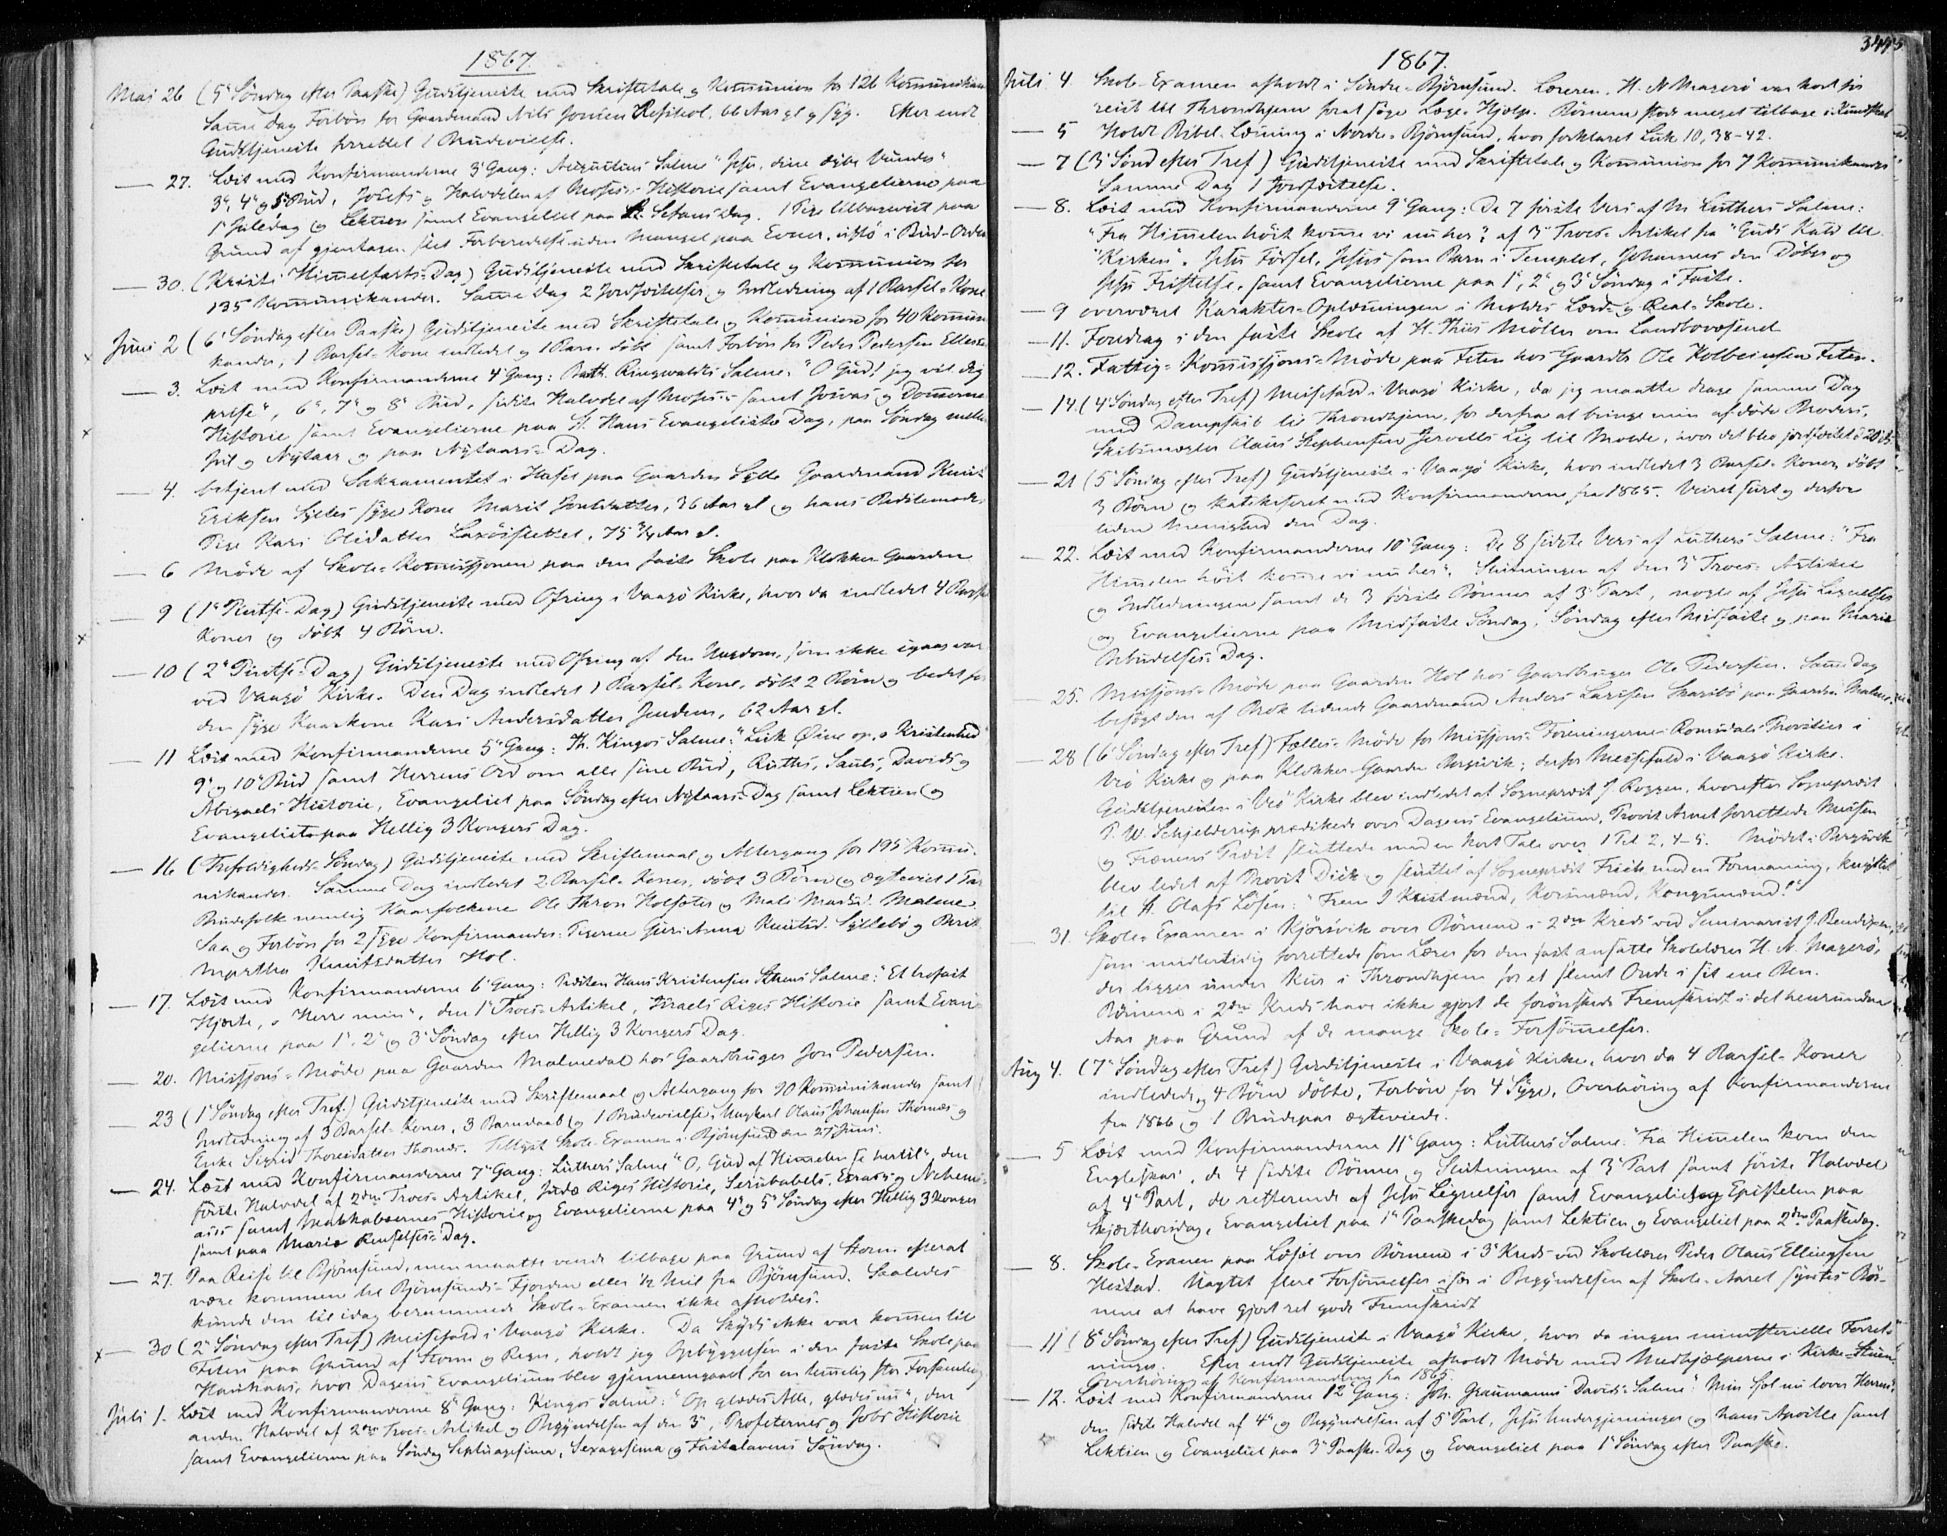 1867.
Mai 26 (5e Søndag efter Paaske) Gudstjeneste med Skriftetale og Kommunion for 126 Kommunikan
Samme Dag Forbøn for Gaardmand Nils Jonsen, 66 Aar gl. og syg. Efter endt
Gudstjeneste forrettet 1 Brudevielse.
— 27. Læst med Konfirmanderne 3e Gang: Salme "Jesu, dine dybe Vunder"
3e, 4e og 5e Bud, Josefs og Halvdelen af Moses's Historie samt Evangelierne paa
1e Juledag og Lektien samt Evangeliet paa St. Stefans Dag. 1 Pige tilbagevist paa
Grund af gjentagen slet Forberedelse uden Mangel paa Evner,
— 30. (Kristi Himmelfarts-Dag) Gudstjeneste med Skriftetale og Kommunion for
135 Kommunikander. Samme Dag 2 Jordfæstelser og Indledning af 1 Barsel-Kone
Juni 2 (6e Søndag efter Paaske) Gudstjeneste med Skriftetale og Kommunion for 40 Kommuni
kander, 1 Barsel-Kone indledet og 1 Barn døbt samt Forbøn for Peder Pedersen
— 3. Læst med Konfirmanderne 4e Gang: Barth. Ringwaldts Salme: "O Gud! jeg vil dig
prise", 6e, 7e og 8e Bud, sidste Halvdel af Moses's samt Josvas og Dommernes
Historie samt Evangelierne paa St. Hans Evangelistes Dag, paa Søndag mellem
Jul og Nytaar og paa Nytaars-Dag.
— 4. betjent med Sakramentet i Huset paa Gaarden Sylte Gaardmand Knut
Eriksen Syltes syge Kone Marit Jonsdatter, 36 Aar gl. og hans Bedstemoder
Pige Kari Olsdatter, 75 3/4 Aar gl.
— 6 Møde af Skole-Kommissjonen paa den faste Skole paa Klokker-Gaarden
— 9 (1e Pintse-Dag) Gudstjeneste med Ofring i Vaagø Kirke, hvor da indledet 4 Barsel
Koner og døbt 4 Børn.
— 10 (2e Pintse-Dag) Gudstjeneste med Ofring af den Ungdom, som ikke igaar var
ved Vaagø Kirke. Den Dag indledet 1 Barsel-Kone, døbt 2 Børn og bedet for
den syge Kaarkone Kari Andersdatter Jendem, 62 Aar gl.
— 11 Læst med Konfirmanderne 5e Gang: Th. Kingos Salme: "Luk Øine op, o Kristenhed"
9e og 10e Bud samt Herrens Ord om alle sine Bud, Ruths, Sauls, Davids og
Abigaels Historie, Evangeliet paa Søndag efter Nytaars-Dag samt Lektien og
Evangeliet paa Hellig 3 Kongers Dag.
— 16 (Trefoldigheds-Søndag) Gudstjeneste med Skriftemaal og Altergang for 195 Kommu-
nikander. Samme Dag indledet 2 Barsel-Koner, døbt 3 Børn og ægteviet 1 Par
Brudefolk nemlig Kaarfolkene Ole Thron og Mali Malme
Saa og Forbøn for 2 syge Konfirmander: Pigerne Guri Anna Knutsd. Syltebø og Berit
Myrtha Knutsdatter Hol.
— 17. Læst med Konfirmanderne 6e Gang: Præsten Hans Kristensen Sthens Salme: "Et trofast
Hjerte, o Herre min", den 1e Troes-Artikel, Israels Riges Historie samt Evan-
gelierne paa 1e, 2e og 3e Søndag efter Hellig 3 Kongers Dag.
— 20. Missjons-Møde paa Gaarden Malmedal hos Gaardbruger Jon Pedersen.
— 23 (1e Søndag efter Tref.) Gudstjeneste med Skriftemaal og Altergang for 90 Kommunikander samt
Indledning af 3 Barsel-Koner, 3 Barnedaab og 1 Brudevielse, Ungkarl Olaus Johansen Thornæs og
Enke Sigrid Thoresdatter Thornæs. Tillyst Skole-Examen i Bjørnsund den 27 Juni.
— 24. Læst med Konfirmanderne 7e Gang: Luthers Salme "O, Gud af Himmelen se hertil", den
første Halvdel af 2den Troes-Artikel, Judæ Riges Historie, Serubabels, Esras og Nehemi-
as's samt Makkabæernes Historie og Evangelierne paa 4e og 5e Søndag efter Hellig 3 Konger
samt paa Mariæ Renselses-Dag.
— 27. Paa Reise til Bjørnsund, men maatte vende tilbage paa Grund af Storm efterat
være kommen til Bjørnsunds-Fjorden eller ½ Mil fra Bjørnsund. Saaledes
kunde den til idag berammede Skole-Examen ikke afholdes.
— 30 (2e Søndag efter Tref) Messefald i Vaagø Kirke. Da Skyds ikke var kommen til
Feten paa Grund af Storm og Regn, holdt jeg Opbyggelse i den faste Skole paa
Haukaas, hvor Dagens Evangelium blev gjennemgaaet for en temmelig stor Forsamling
Juli 1. Læst med Konfirmanderne 8e Gang: Kingos Salme: "Op glædes Alle, glædes nu", den
anden Halvdel af 2den Troes-Artikel og Begyndelsen af den 3e, Profeternes og Jobs Historie
samt Evangelierne paa Søndag Septuagesima, Sexagesima og Fastelavens Søndag.
1867.
3445
Juli 4 Skole-Examen afholdt i Søndre-Bjørnsund. Læreren, H. N. Magerø var kort før
reist til Throndhjem for at søge Læge-Hjelp. Børnene stode meget tilbage i Kundskab
— 5 Holdt Bibel-Læsning i Nordre-Bjørnsund, hvor forklaret Luk 10, 38-42.
— 7 (3e Sønd efter Tref) Gudstjeneste med Skriftetale og Kommunion for 7 Kommunikander
Samme Dag 1 Jordfæstelse.
— 8. Læst med Konfirmanderne 9e Gang: De 7 første Vers af M. Luthers Salme:
"Fra Himmelen høit komme vi nu her", af 3e Troes-Artikel fra "Guds Kald til
Kirken", Jesu Fødsel, Jesus som Barn i Templet, Johannes den Døber og
Jesu Fristelse, samt Evangelierne paa 1e, 2e og 3e Søndag i Faste.
— 9 overværet Karakter-Oplæsningen i Molde Lærd- og Real-Skole.
— 11. Foredrag i den faste Skole af H. Thiis Møller om Landbovæsenet
— 12. Fattig-Kommissjons-Møde paa Feten hos Gaardb. Ole Kolbeinsen Feten.
— 14. (4 Søndag efter Tref) Messefald i Vaagø Kirke, da jeg maatte drage samme Dag
med Dampskib til Throndhjem, for derfra at bringe min afdøde Broders,
Skibsmægler Claus Stephensen Jervells Lig til Molde, hvor det blev jordfæstet d 20 ds
— 21 (5e Søndag efter Tref) Gudstjeneste i Vaagø Kirke, hvor indledet 3 Barsel-Koner, døbt
3 Børn og katekiseret med Konfirmanderne fra 1865. Veiret surt og derfor
liden Menighed den Dag.
— 22. Læst med Konfirmanderne 10e Gang: De 8 sidste Vers af Luthers Salme: "Fra
Himmelen høit komme vi nu her", Slutningen af den 3e Troes-Artikel
og Indledningen samt de 3 første Bønner af 3e Part, nogle af Jesu Lignelser
og Evangelierne paa Midfaste Søndag, Søndag efter Midfaste og paa Mariæ
Bebudelses-Dag.
— 25. Missjons-Møde paa Gaarden Hol hos Gaardbruger Ole Pedersen. Samme Dag
besøgt den af Brok lidende Gaardmand Anders Larssen paa Gaarden Malme.
— 28 (6e Søndag efter Tref) Fælles-Møde for Missjons-Foreningerne i Romsdals Provsti i
Vrø Kirke og paa Klokker-Gaarden Bergsvik; derfor Messefald i Vaagø Kirke.
Gudstjenesten i Vrø Kirke blev indledet af Sogneprest J Roggen, hvorefter Sogneprest
P. W. Schjelderup prædikede over Dagens Evangelium, Provst Arnet forrettede Messen
og Frænens Prest sluttede med en kort Tale over 1 Pet 2, 4-5. Mødet i Bergsvik
blev ledet af Provst Dick og sluttet af Sogneprest Friis med en Formaning, knyttet
til St. Olafs Løsen: "Frem I Kristmænd, Korsmænd, Kongsmænd!"
— 31. Skole-Examen i Kjørsvik over Børnene i 2den Kreds ved Seminarist J. Bendixen,
som midlertidig forrettede som Lærer for den fast ansatte Skolelærer H. N. Magerø,
der ligger under Kur i Throndhjem for et slemt Onde i sit ene Ben.
Børnene i 2den Kreds have ikke gjort de forønskede Fremskridt i det henrundne
Aar paa Grund af de mange Skole-Forsømmelser.
Aug 4. (7e Søndag efter Tref) Gudstjeneste i Vaagø Kirke, hvor da 4 Barsel-Koner
indledede, 4 Børn døbte, Forbøn for 4 Syge, Overhøring af Konfirmanderne
fra 1866 og 1 Brudepar ægteviede.
— 5 Læst med Konfirmanderne 11e Gang: Luthers Salme: "Fra Himmelen kom den
Engleskar", de 4 sidste Bønner og Slutningen af 3e Part samt første Halvdel
af 4e Part, de resterende af Jesu Lignelser samt Evangeliet og Epistelen paa
Skjærthorsdag, Evangeliet paa 1e Paaskedag samt Lektien og Evangeliet paa 2den Paaskedag.
— 8. Skole-Examen paa Løset over Børnene i 3e Kreds ved Skolelærer Peder Olaus Ellingsen
Hestad. Uagtet flere Forsømmelser især i Begyndelsen af Skole-Aaret syntes Bør-
nene at have gjort ret gode Fremskridt
— 11 (8e Søndag efter Tref) Gudstjeneste i Vaagø Kirke, hvor da ingen ministerielle Forret-
ninger. Efter endt Gudstjeneste afholdt Møde med Medhjælperne i Kirke-Stuen.
Overhøring af Konfirmanderne fra 1865.
— 12. Læst med Konfirmanderne 12e Gang: Joh. Graumanns Davids Salme: "Min Sjæl nu lover Herren",
den sidste Halvdel af 4e og Begyndelsen af 5e Part, Jesu Undergjerninger og hans Apostle samt
Lektien og Evangeliet paa 3e Paaske-Dag og Evangeliet paa 1e Søndag efter Paaske.